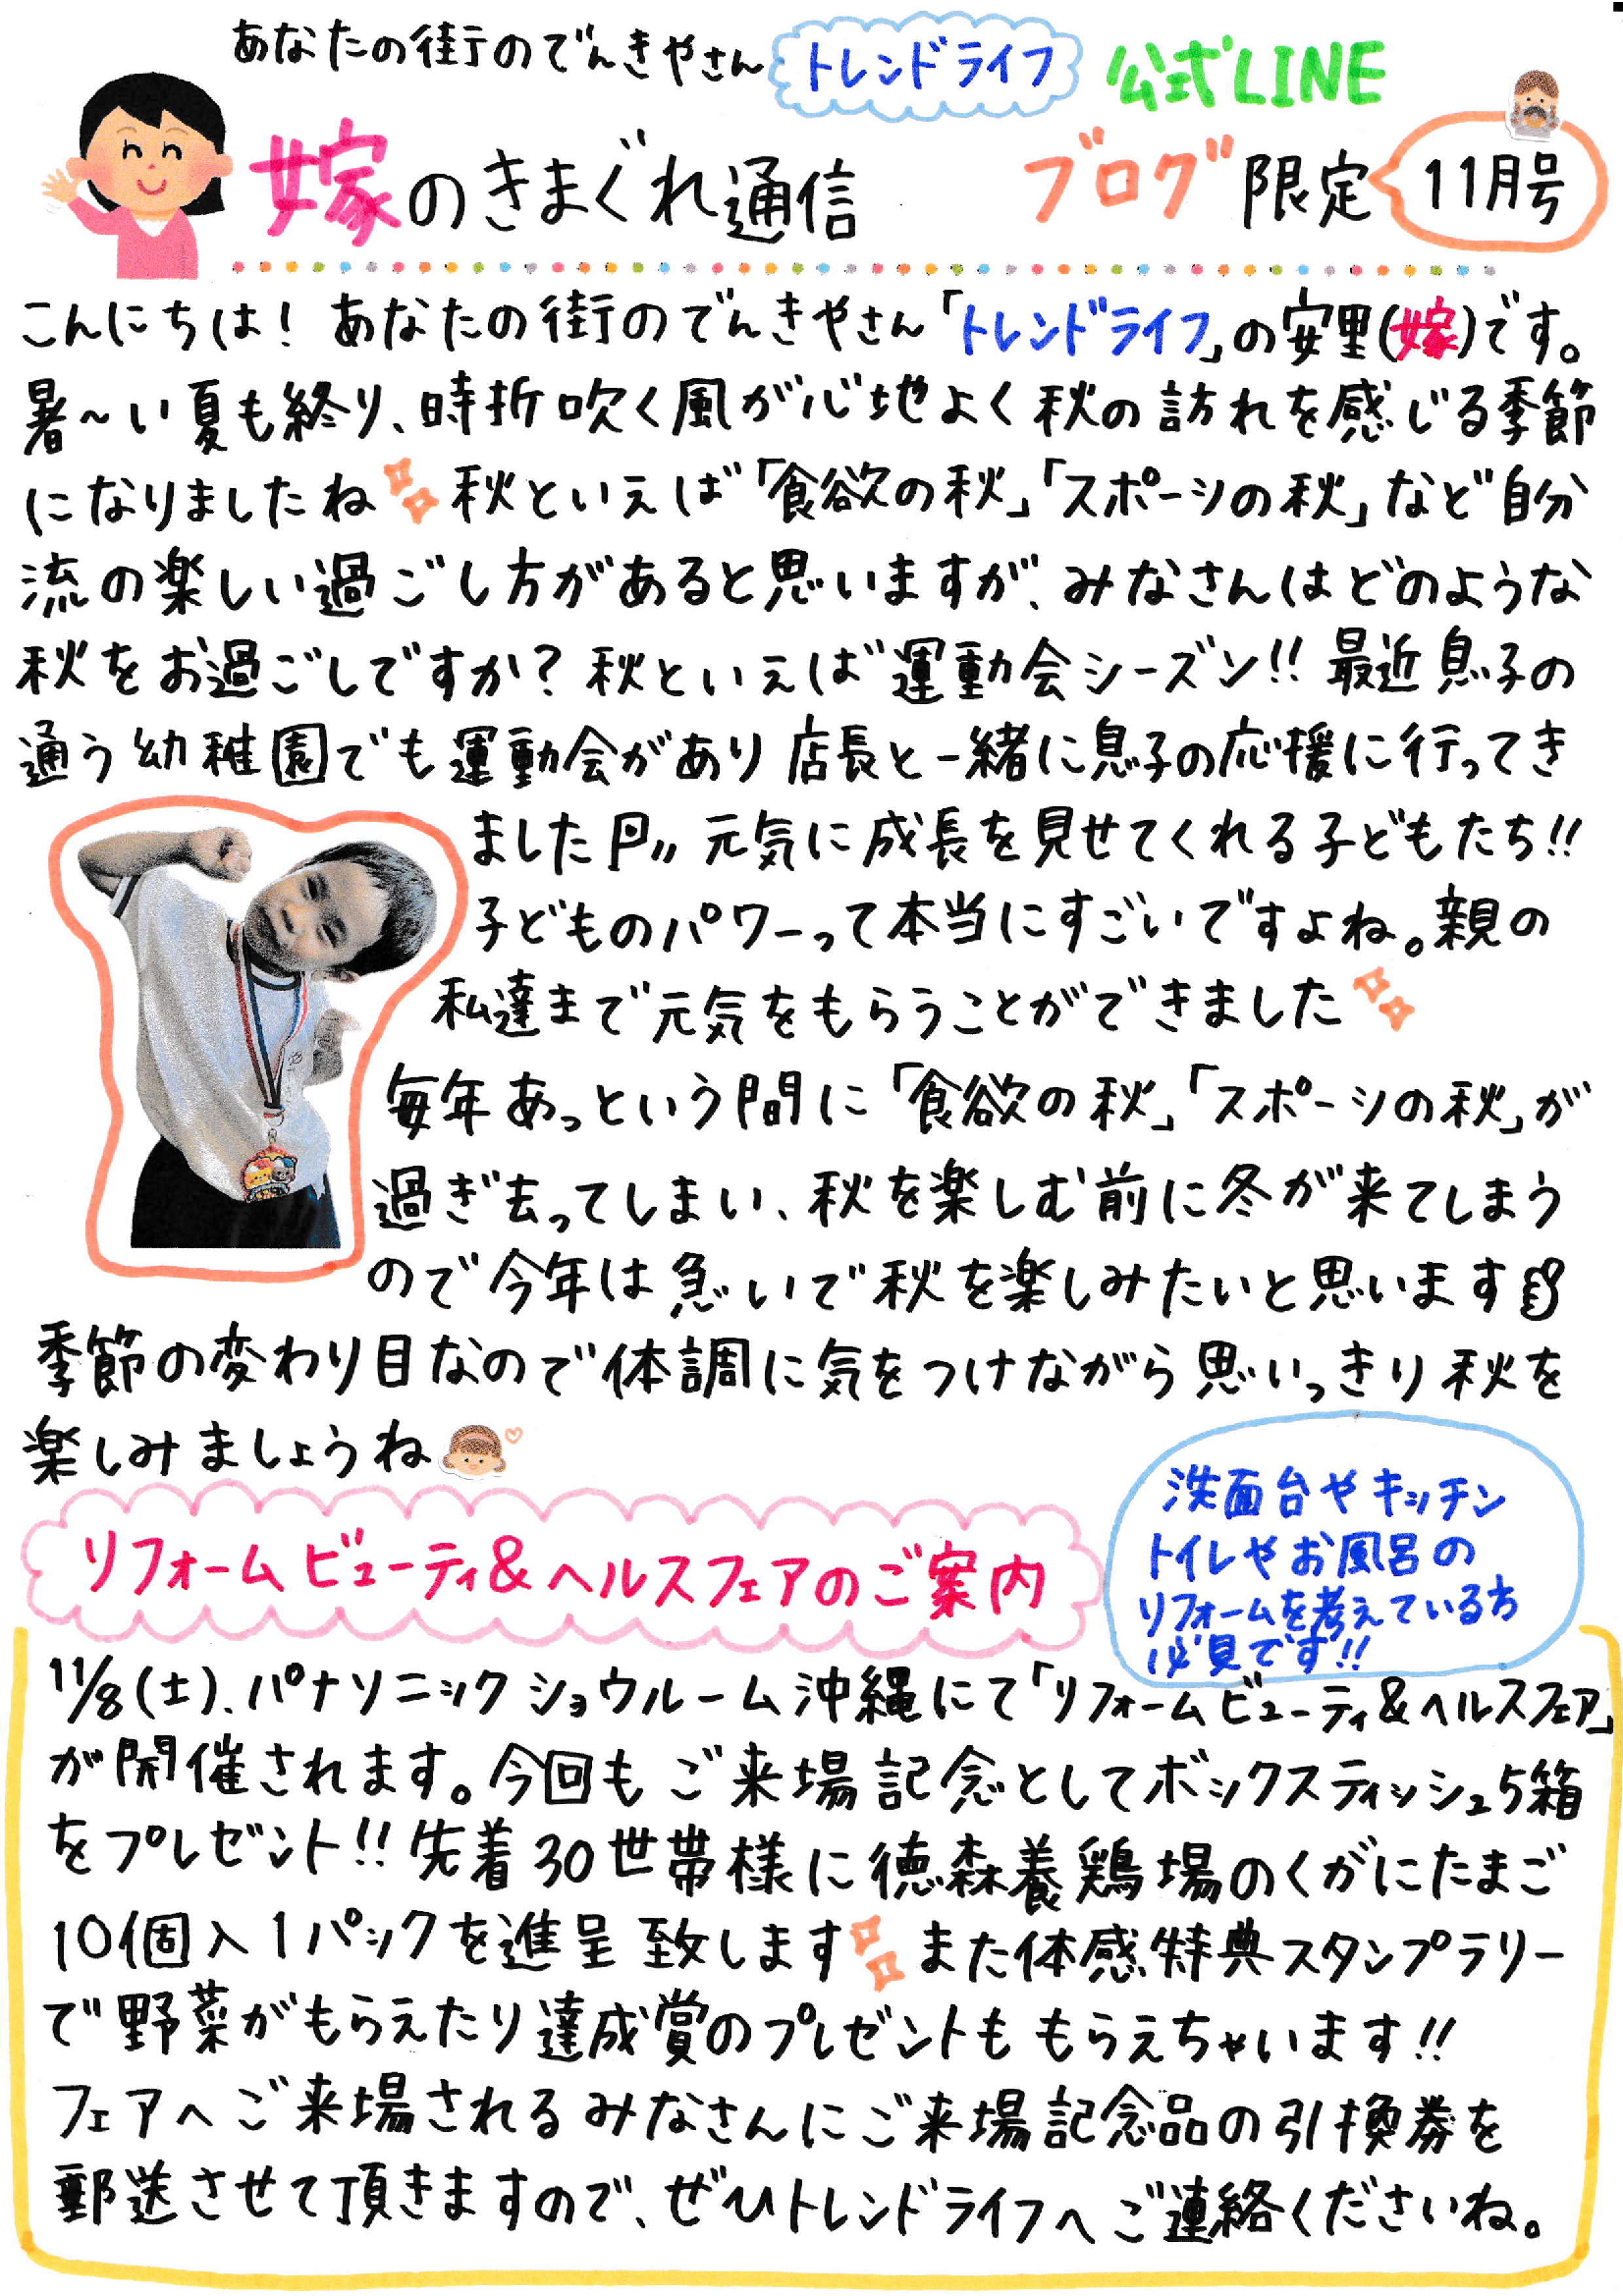 あなたの街のでんきやさん トレンドライフ 公式LINE
嫁のきまぐれ通信 ブログ限定 11月号
こんにちは！あなたの街のでんきやさん「トレンドライフ」の安里(嫁)です。
暑〜い夏も終り、時折吹く風が心地よく秋の訪れを感じる季節
になりましたね 秋といえば「食欲の秋」「スポーツの秋」など自分
流の楽しい過ごし方があると思いますが、みなさんはどのような
秋をお過ごしですか？秋といえば運動会シーズン!!最近息子の
通う幼稚園でも運動会があり店長と一緒に息子の応援に行ってき
ました 元気に成長を見せてくれる子どもたち!!
子どものパワーって本当にすごいですよね。親の
私達まで元気をもらうことができました
毎年あっという間に「食欲の秋」「スポーツの秋」が
過ぎ去ってしまい、秋を楽しむ前に冬が来てしまう
ので今年は急いで秋を楽しみたいと思います
季節の変わり目なので体調に気をつけながら思いっきり秋を
楽しみましょうね
洗面台やキッチン
トイレやお風呂の
リフォームを考えている方
必見です!!
リフォームビューティ&ヘルスフェアのご案内
11/8(土)、パナソニックショウルーム沖縄にて「リフォームビューティ&ヘルスフェア」
が開催されます。今回もご来場記念としてボックスティッシュ5箱
をプレゼント!!先着30世帯様に徳森養鶏場のくがにたまご
10個入1パックを進呈致します また体感特典スタンプラリー
で野菜がもらえたり達成賞のプレゼントももらえちゃいます!!
フェアへご来場されるみなさんにご来場記念品の引換券を
郵送させて頂きますので、ぜひトレンドライフへご連絡くださいね。